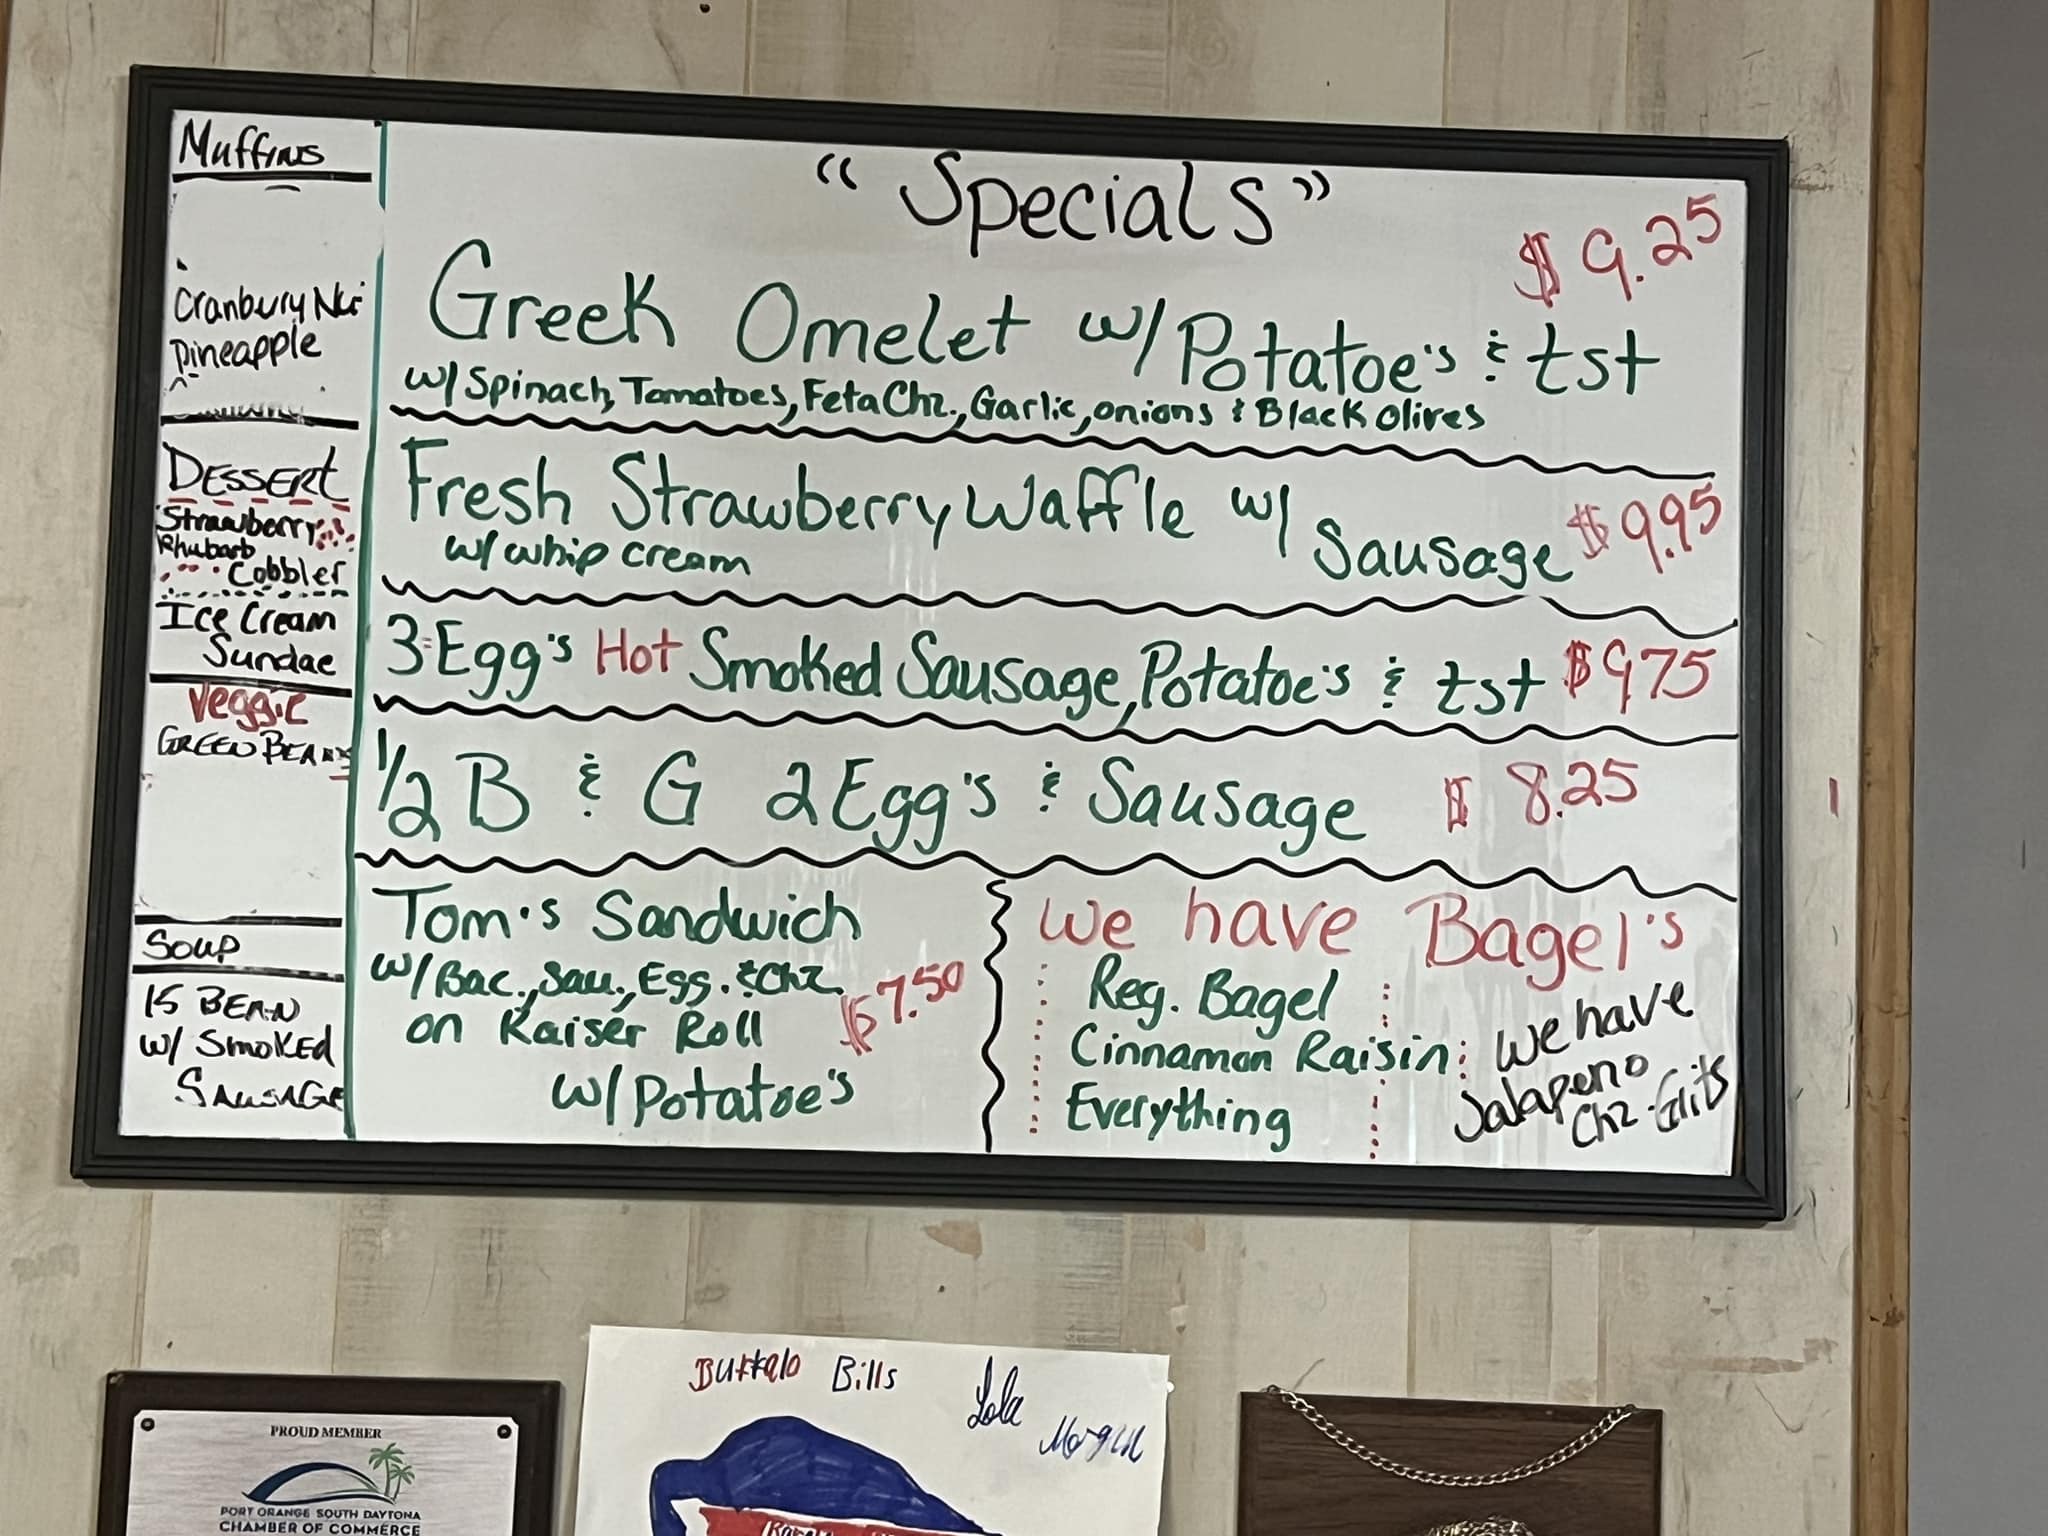 Muffins
Cranbury Nut
Pineapple
DESSERT
Strawberry
Rhubarb
Cobbler
Ice Cream
Sundae
Veggie
GREEN BEANS
Soup
15 BEAN
w/ Smoked
SAUSAGE
"Specials"
$ 9.25
Greek Omelet w/ Potatoe's & tst
w/ Spinach, Tomatoes, Feta Chz., Garlic, onions & Black Olives
Fresh Strawberry Waffle w/ Sausage $ 9.95
w/ whip cream
3-Egg's Hot Smoked Sausage, Potatoe's & tst $ 9.75
1/2 B & G 2 Egg's & Sausage $ 8.25
Tom's Sandwich
w/ Bac., Sau., Egg. & Chz.
on Kaiser Roll $ 7.50
w/ Potatoe's
We have Bagel's
Reg. Bagel
Cinnamon Raisin
Everything
We have
Jalapeno
Chz-Grits
Buffalo Bills
Lola
Morgan
PROUD MEMBER
PORT ORANGE SOUTH DAYTONA
CHAMBER OF COMMERCE